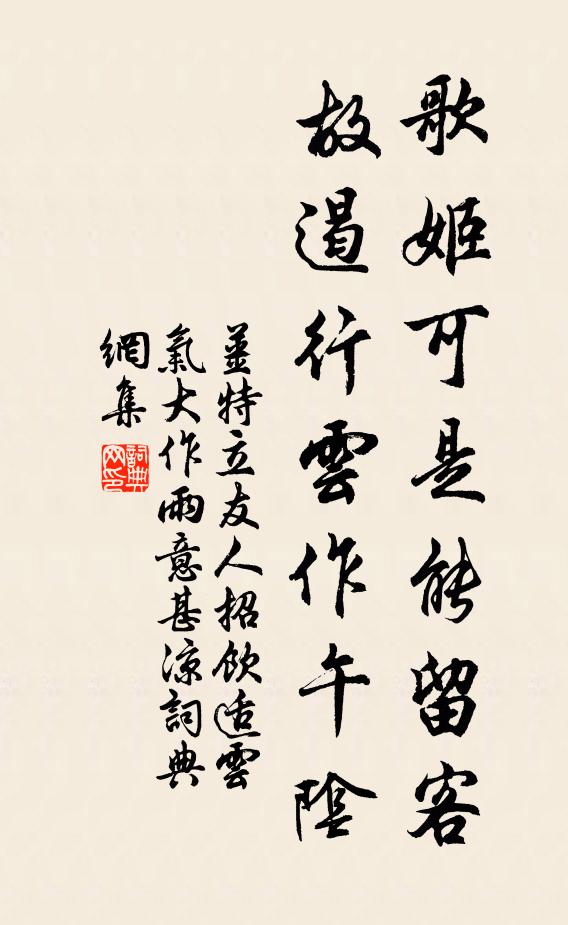 歌姬可是能留客
故遏行雲作午陰
姜特立友人招飲适雲
氣大作雨意甚涼詞典
網集
詞典
网印